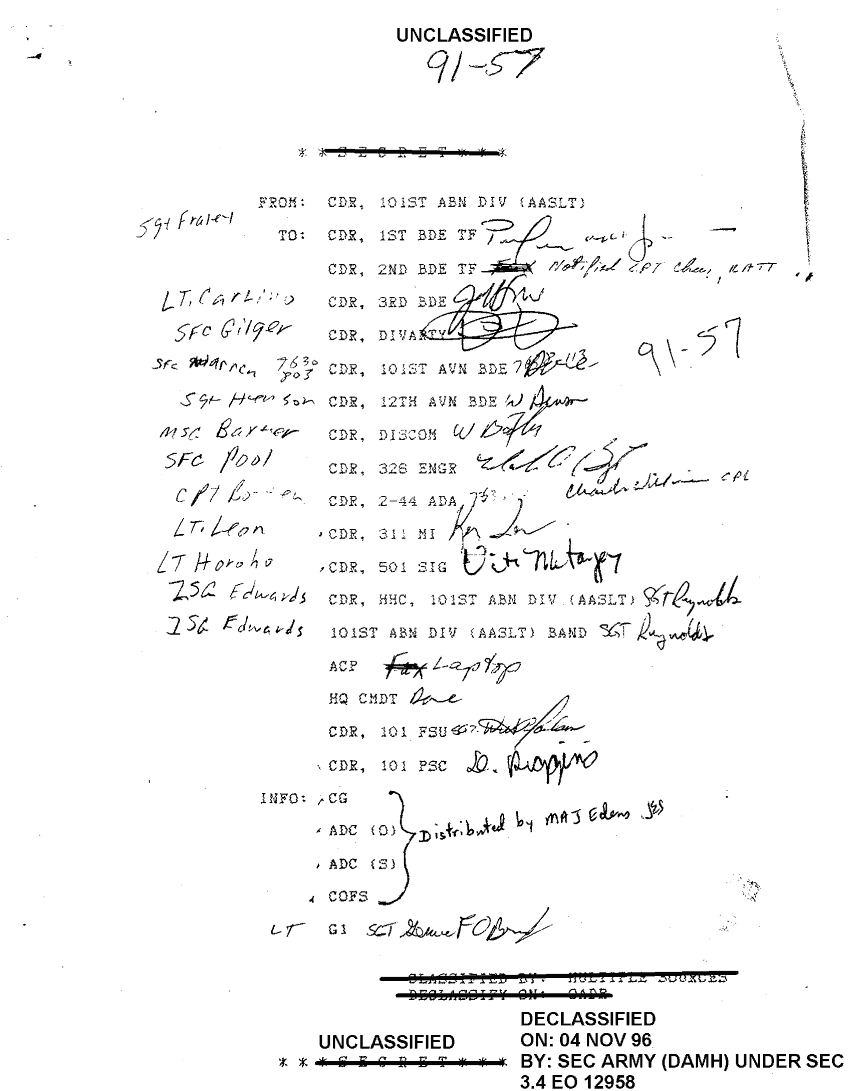 UNCLASSIFIED
91-57
* * S E C R E T * * *
FROM: CDR, 101ST ABN DIV (AASLT)
Sgt Fraley
TO: CDR, 1ST BDE TF
CDR, 2ND BDE TF Fax Notified CPT
LT. Carlino CDR, 3RD BDE
SFC Gilger CDR, DIVARTY
91-57
SFC Warren 7630 803 CDR, 101ST AVN BDE
Sgt CDR, 12TH AVN BDE W
MSG CDR, DISCOM W
SFC Pool CDR, 326 ENGR
CPT CDR, 2-44 ADA CPL
LT. Leon CDR, 311 MI
LT Horoho CDR, 501 SIG
ISG Edwards CDR, HHC, 101ST ABN DIV (AASLT) SGT Reynolds
ISG Edwards 101ST ABN DIV (AASLT) BAND SGT Reynolds
ACP Fax Laptop
HQ CMDT
CDR, 101 FSU
CDR, 101 PSC D.
INFO: CG
ADC (O) Distributed by MAJ Edens
ADC (S)
COFS
LT G1 SGT
CLASSIFIED BY: MULTIPLE SOURCES
DECLASSIFY ON: OADR
UNCLASSIFIED
* * S E C R E T * * *
DECLASSIFIED
ON: 04 NOV 96
BY: SEC ARMY (DAMH) UNDER SEC
3.4 EO 12958